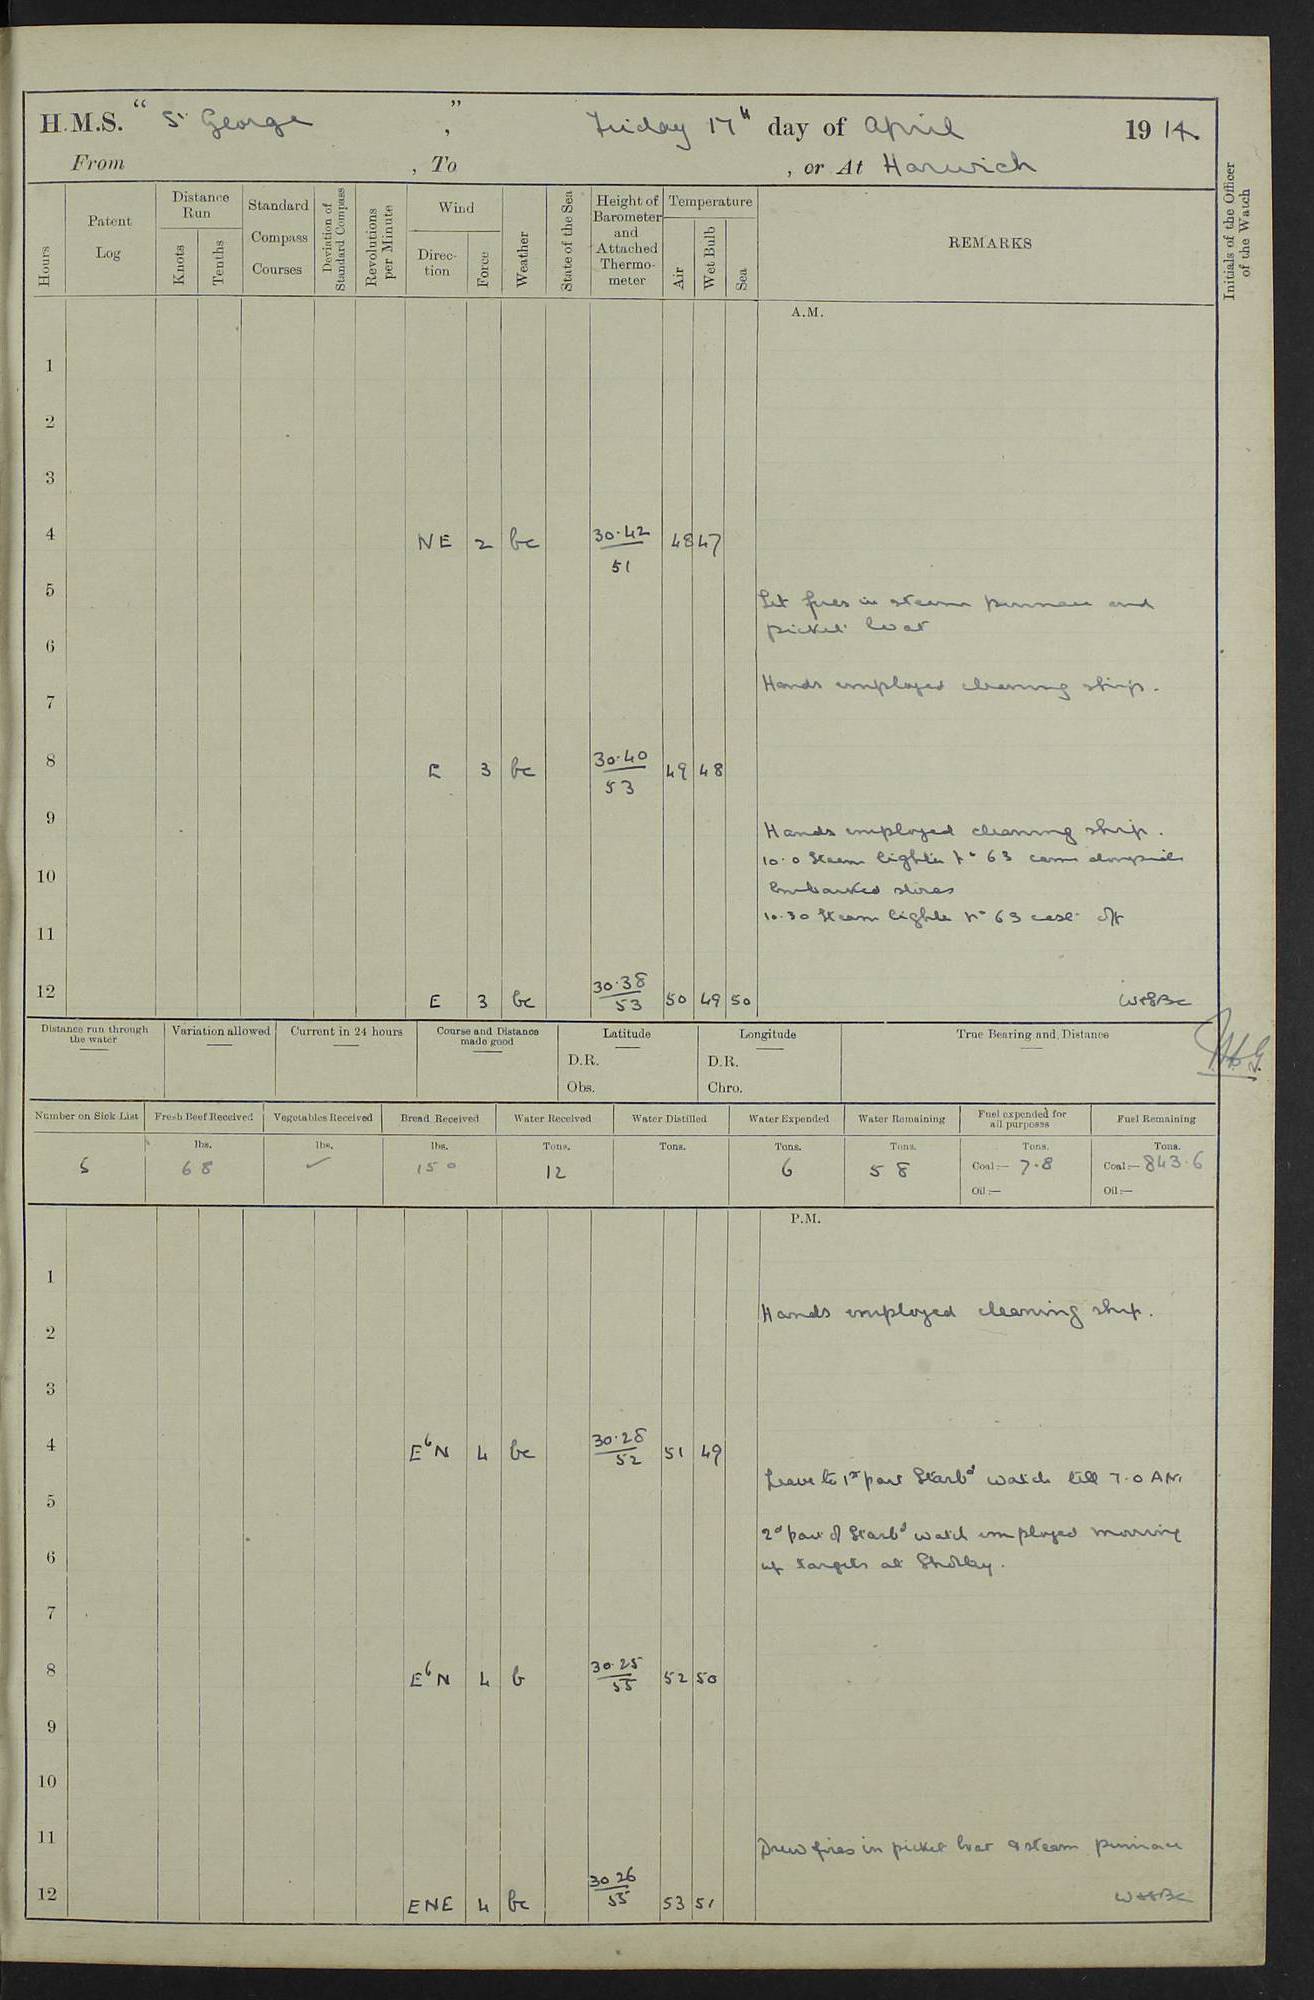 H.M.S. “ St George ” , Friday 17th day of April 1914.
From , To , or At Harwich
Hours
Patent Log
Distance Run
Knots
Tenths
Standard Compass Courses
Deviation of Standard Compass
Revolutions per Minute
Wind
Direction
Force
Weather
State of the Sea
Height of Barometer and Attached Thermometer
Temperature
Air
Wet Bulb
Sea
REMARKS
Initials of the Officer of the Watch
A.M.
1
2
3
4 NE 2 bc 30.42 51 48 47
5
Lit fires in steam pinnace and
picket boat
6
Hands employed cleaning ship.
7
8 E 3 bc 30.40 53 49 48
9
Hands employed cleaning ship.
10.0 Steam lighter No 63 came alongside
10
Embarked stores
10.30 Steam lighter No 63 cast off
11
12 E 3 bc 30.38 53 50 49 50
Distance run through the water
Variation allowed
Current in 24 hours
Course and Distance made good
Latitude
D.R.
Obs.
Longitude
D.R.
Chro.
True Bearing and Distance
Number on Sick List Fresh Beef Received Vegetables Received Bread Received Water Received Water Distilled Water Expended Water Remaining Fuel expended for all purposes Fuel Remaining
lbs. lbs. lbs. Tons. Tons. Tons. Tons. Tons. Tons.
5 68 ✓ 150 12 6 58 Coal:— 7.8 Coal:— 843.6
Oil:— Oil:—
P.M.
1
Hands employed cleaning ship.
2
3
4 E b N 4 bc 30.28 52 51 49
Leave to 1st part Starbd watch till 7.0 AM
5
2d part of Starbd watch employed moving
6
up targets at Shotley.
7
8 E b N 4 b 30.25 55 52 50
9
10
11
Drew fires in picket boat & steam pinnace
12 ENE 4 bc 30 26 55 53 51